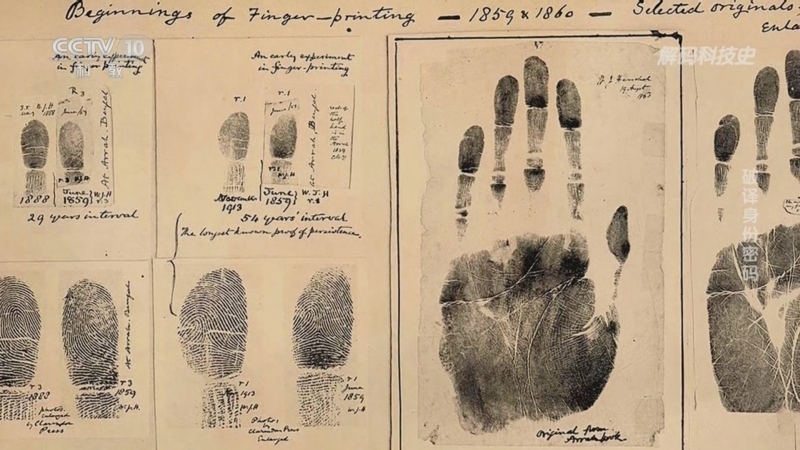 Beginnings of Finger-printing — 1859 & 1860 — Selected originals
Enla
CCTV 10
科教
解码科技史
破译身份密码
An early experiment
in finger printing
R 3
1888
June
1859
W.J.H
r.3
At Arrah. Bengal
29 years interval
An early experiment
in finger-printing
r.1
r.1
November
1913
June
1859
W.J.H
r.1
At Arrah. Bengal
54 years' interval
The longest known proof of persistence.
r 3
1888
Photos
Enlarged
by Clarendon
Press
r 3
1859
W.J.H.
At Arrah. Bengal
r.1
1913
W.J.H
Photos,
Clarendon Press
Enlarged
r 1
June
1859
W.J.H
W. J. Herschel
Original from